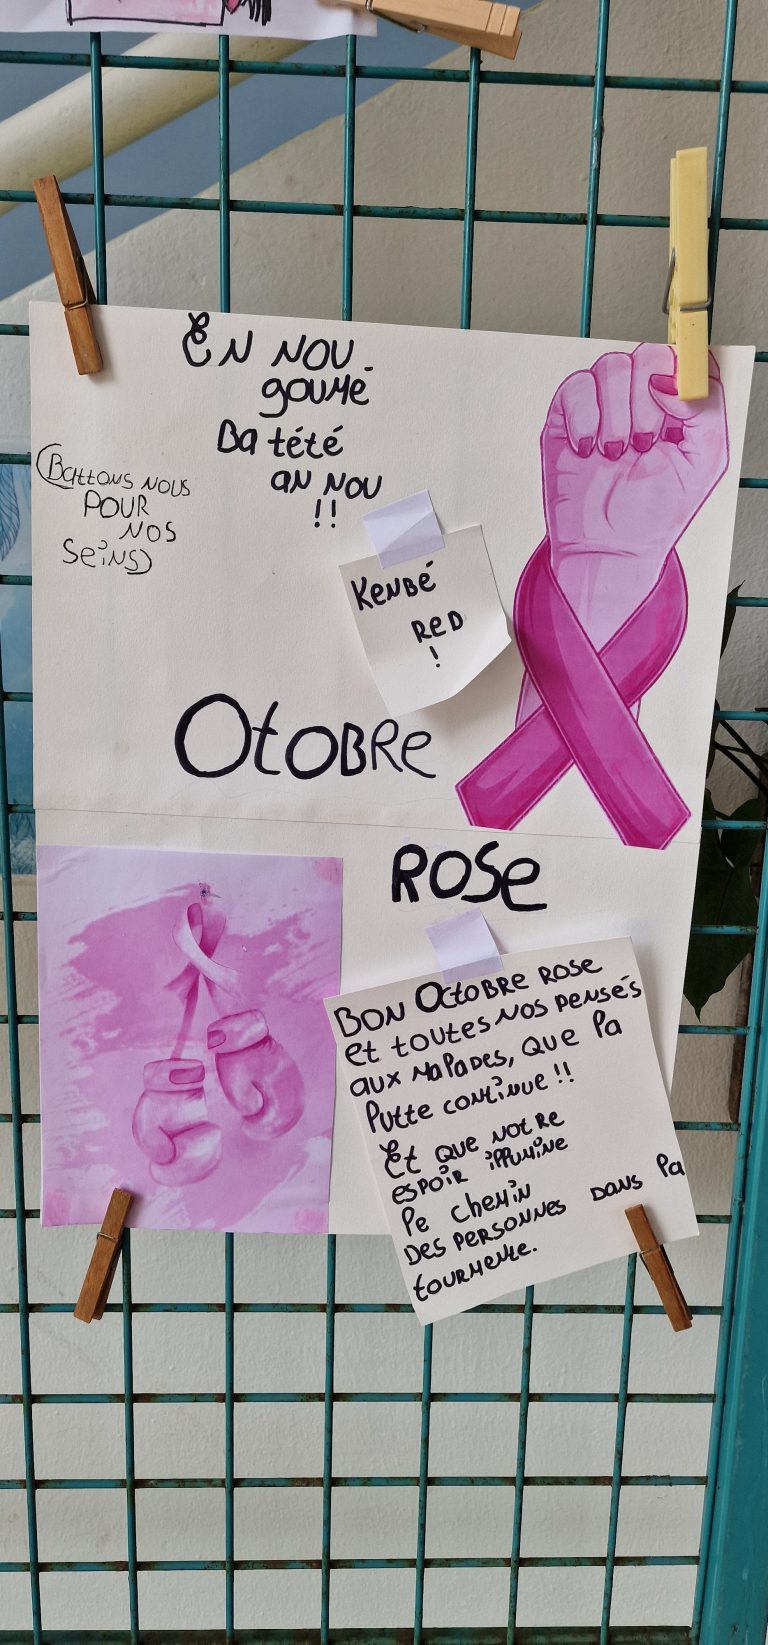 EN NOU
GOUMÉ
Ba tété
an nou
!!
(Battons nous
pour
nos
seins)
Kenbé
red
!
Otobre
Rose
Bon Octobre rose
et toutes nos pensés
aux malades, que la
lutte continue !!
Et que notre
espoir illumine
le chemin
des personnes dans la
tourmente.